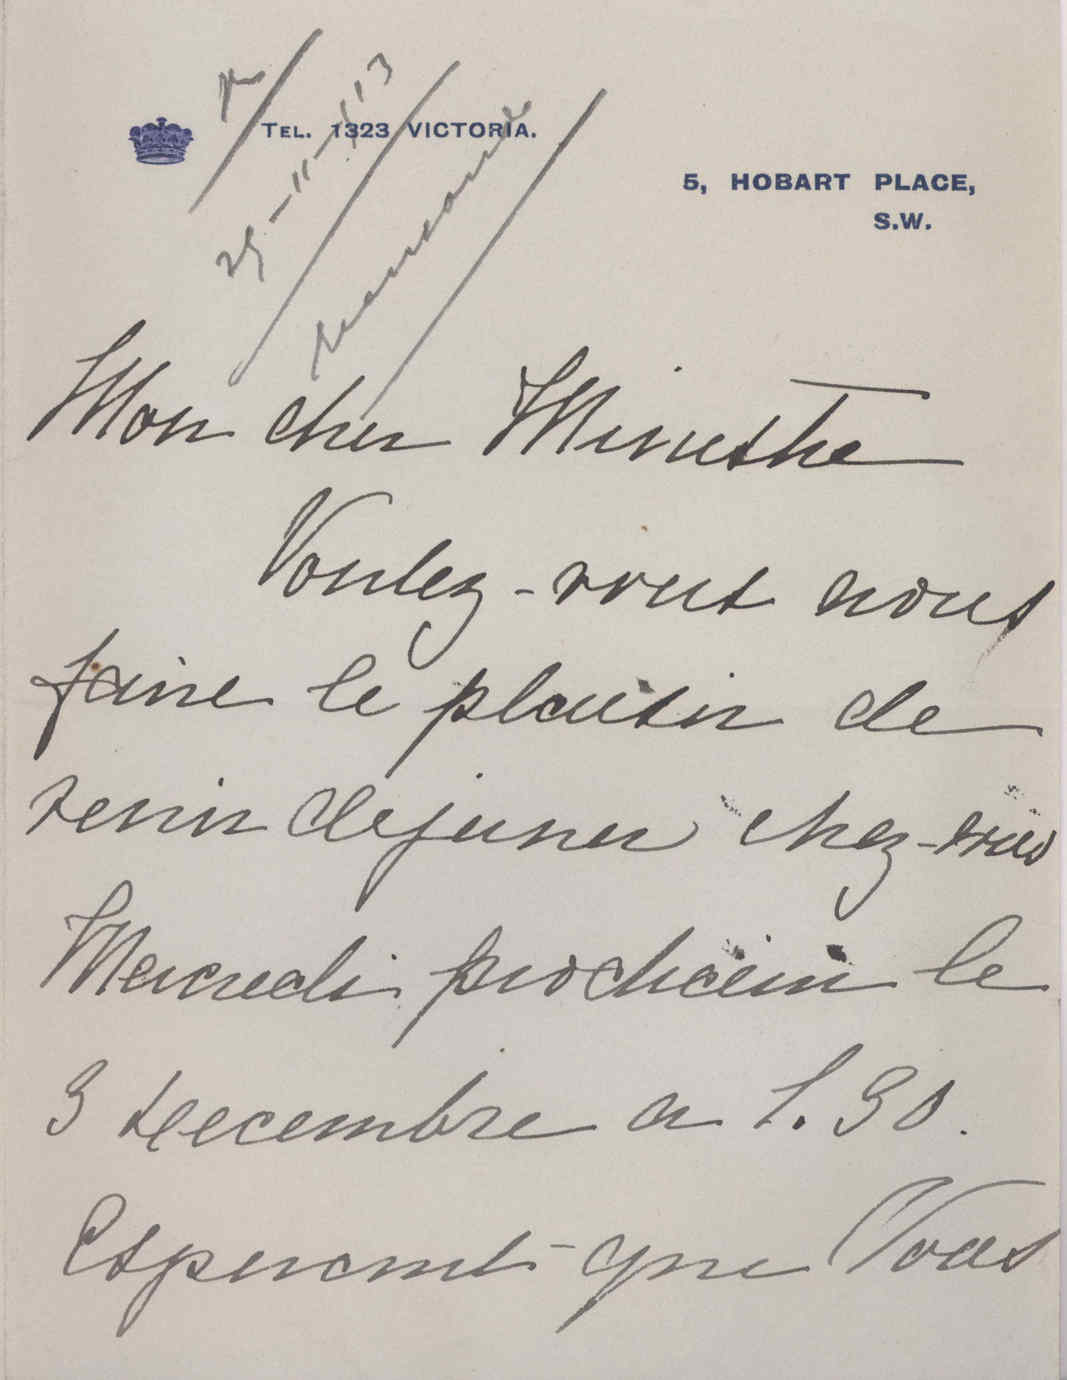 TEL. 1323 VICTORIA.
5, HOBART PLACE,
S.W.
29-11-913
Mon cher Ministre
Voulez-vous nous
faire le plaisir de
venir dejeuner chez-nous
Mercredi prochain le
3 Decembre a 1.30.
Esperant que Vous